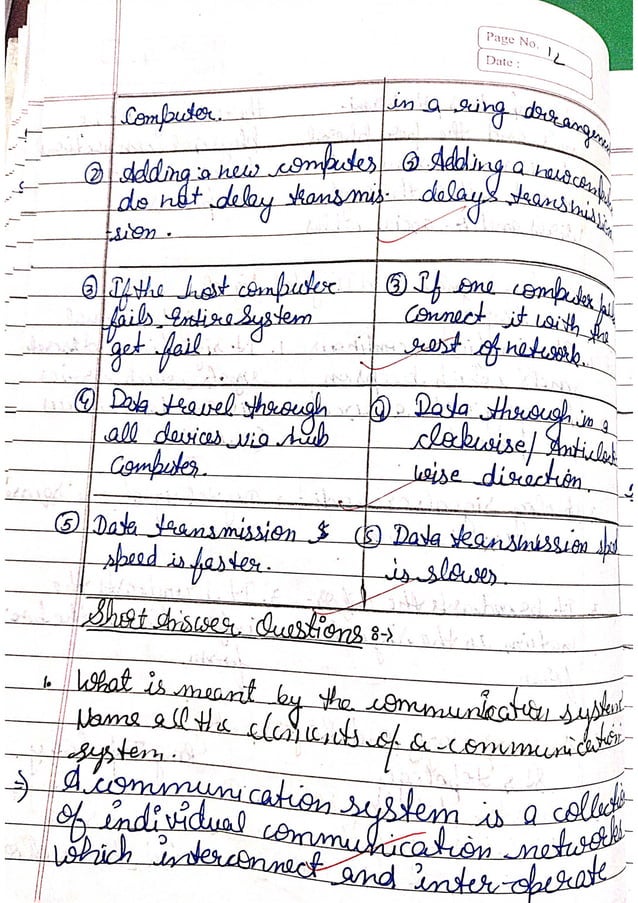 Page No. 12
Date :
Computer.
in a ring
② Adding a new computer
do not delay transmis-
-sion.
② Adding a new
delays
③ If the host computer
fails Entire System
get fail.
③ If one computer
connect it with the
rest of network.
④ Data travel through
all devices via hub
Computer.
④ Data through in a
clockwise/
wise direction.
⑤ Data transmission
speed is faster.
⑤ Data transmission
is slower.
Short Answer Questions :->
1. What is meant by the communication system
Name all the elements of a communication
system.
=> A communication system is a
of individual communication networks
which interconnect and inter-operate